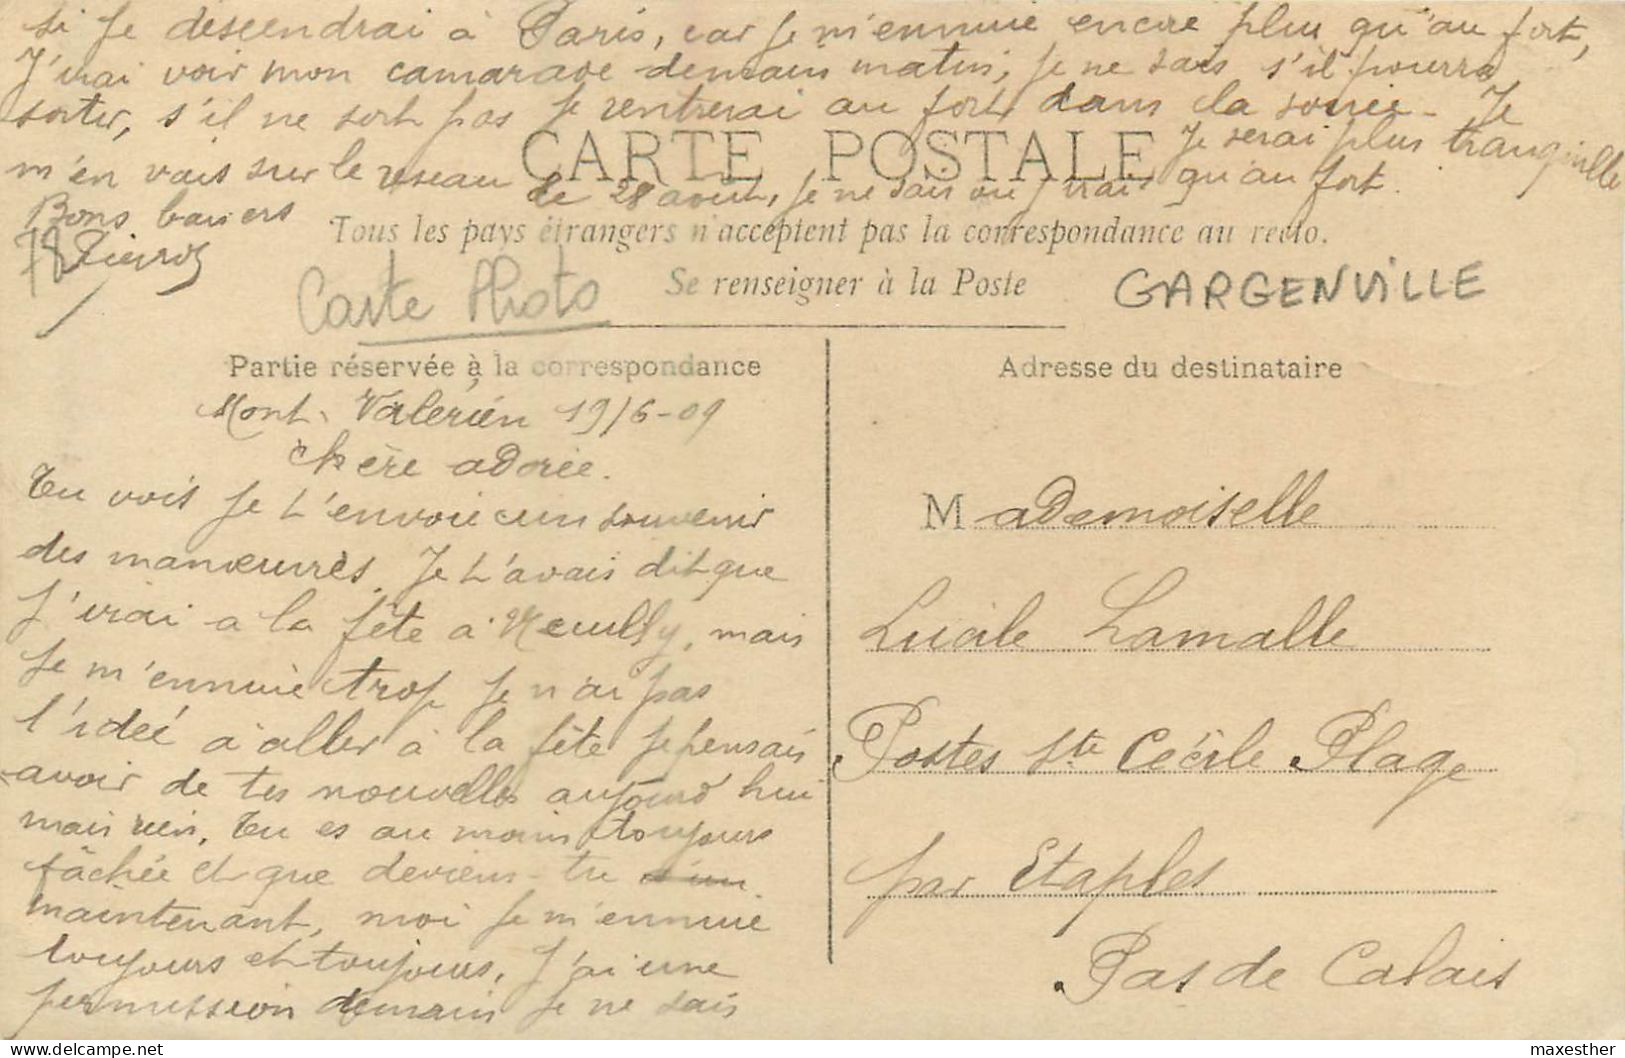 si je descendrai à Paris, car je m'ennuie encore plus qu'au fort,
J'irai voir mon camarade demain matin, je ne sais s'il pourra
sortir, s'il ne sort pas je rentrerai au fort dans la soirée - Je
Je serai plus tranquille
m'en vais sur le réseau de 28 août, je ne sais où j'irai qu'au fort.
Bons baisers
78
CARTE POSTALE
Tous les pays étrangers n'acceptent pas la correspondance au recto.
Se renseigner à la Poste
Carte Photo
GARGENVILLE
Partie réservée à la correspondance
Mont-Valérien 19/6-09
Chère adorée.
Tu vois je t'envoie un souvenir
des manœuvres. Je t'avais dit que
j'irai a la fête à Neuilly, mais
je m'ennuie trop je n'ai pas
l'idée d'aller à la fête je pensais
avoir de tes nouvelles aujourd'hui
mais rien. Tu es au moins toujours
fâchée et que deviens-tu
maintenant, moi je m'ennuie
toujours et toujours, J'ai une
permission demain je ne sais
Adresse du destinataire
Mademoiselle
Lucile Lamalle
Postes Ste Cécile Plage
par Etaples
Pas de Calais
maxesther